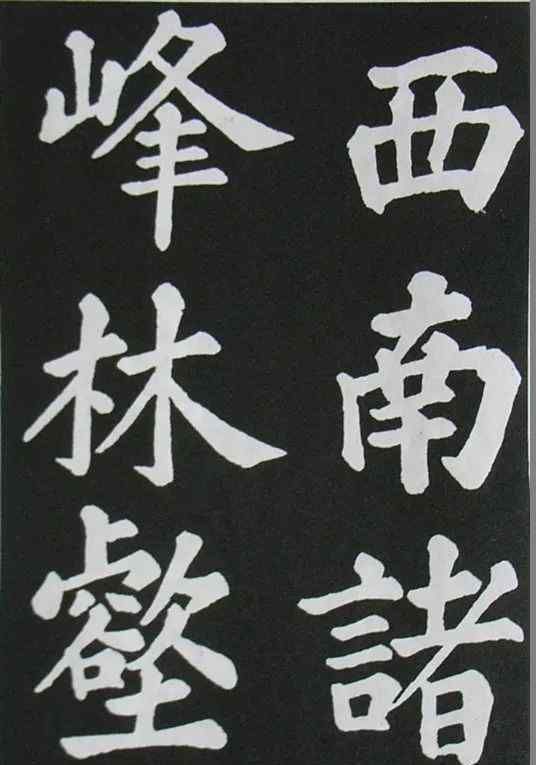 西南諸
峰林壑